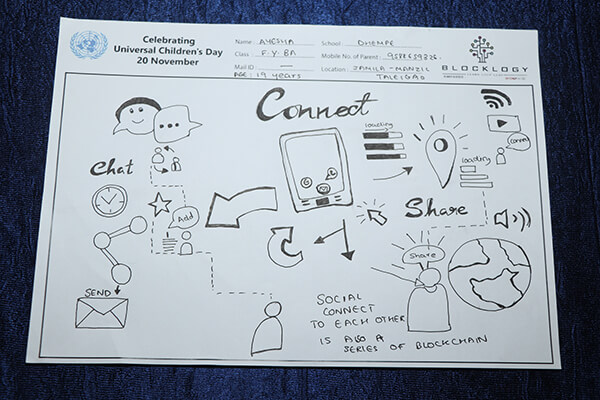 Celebrating
Universal Children's Day
20 November
Name AYESHA School DHEMPE
Class F.Y.BA Mobile No. of Parent
Mail ID — Location JANKA-MANZIL
AGE: 19 years TALEIGAO
BLOCKLOGY
Connect
loading
Chat
connect
loading
Add
Share
Share
SEND
SOCIAL
CONNECT
TO EACH OTHER
IS ALSO A
SERIES OF BLOCKCHAIN